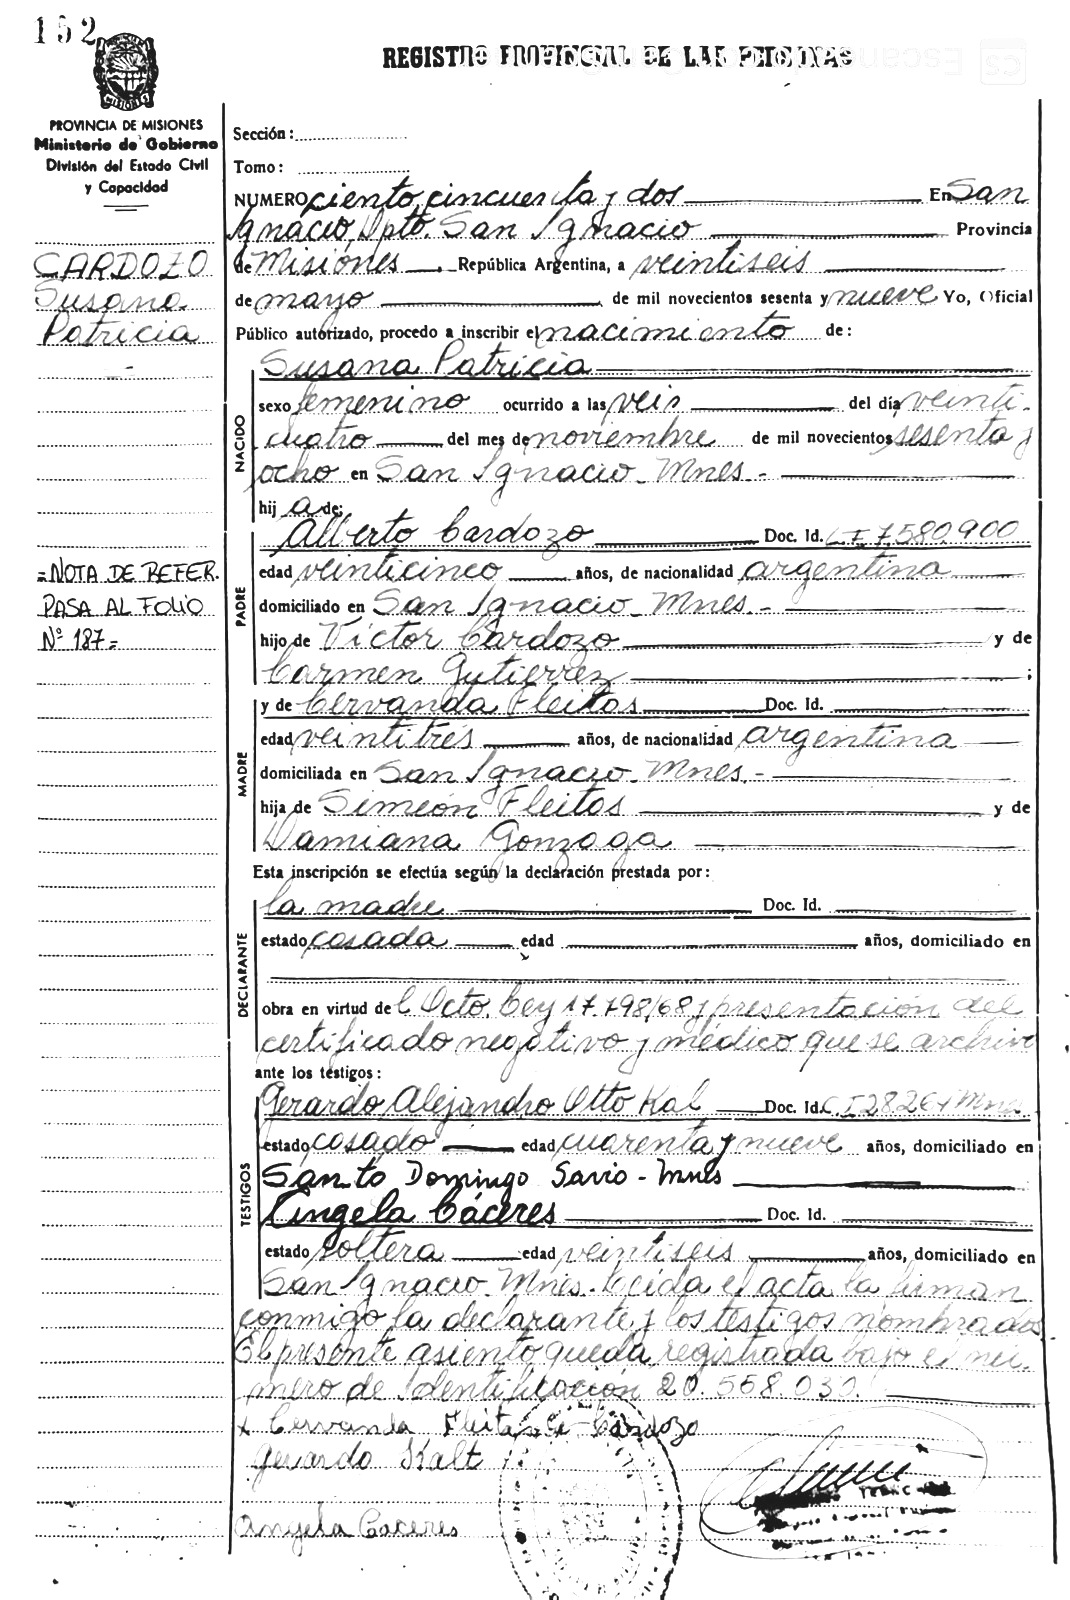 152
REGISTRO PROVINCIAL DE LAS PERSONAS
PROVINCIA DE MISIONES
Ministerio de Gobierno
División del Estado Civil
y Capacidad
CARDOZO
Susana
Patricia
=NOTA DE REFER.
PASA AL FOLIO
Nº 187=
Sección:
Tomo:
NUMERO ciento cincuenta y dos En San
Ignacio, Dpto. San Ignacio Provincia
de Misiones República Argentina, a veintiseis
de mayo de mil novecientos sesenta y nueve Yo, Oficial
Público autorizado, procedo a inscribir el nacimiento de:
NACIDO
Susana Patricia
sexo femenino ocurrido a las seis del día veinti-
cuatro del mes de noviembre de mil novecientos sesenta y
ocho en San Ignacio Mnes.-
hij a de:
PADRE
Alberto Cardozo Doc. Id. C I 7.580.900
edad veinticinco años, de nacionalidad argentina
domiciliado en San Ignacio Mnes.-
hijo de Víctor Cardozo y de
Carmen Gutierrez ;
MADRE
y de Cervanda Fleitas Doc. Id.
edad veintitrés años, de nacionalidad argentina
domiciliada en San Ignacio Mnes.-
hija de Simeón Fleitas y de
Damiana Gonzaga
Esta inscripción se efectúa según la declaración prestada por:
DECLARANTE
la madre Doc. Id.
estado casada edad años, domiciliado en
obra en virtud de l Dcto. Ley 17.798/68 y presentación del
certificado negativo y médico que se archiva
ante los testigos:
TESTIGOS
Gerardo Alejandro Otto Kal Doc. Id. C I Mnes
estado casado edad cuarenta y nueve años, domiciliado en
Santo Domingo Savio - Mnes
Angela Cáceres Doc. Id.
estado soltera edad veintiseis años, domiciliado en
San Ignacio Mnes. Leída el acta la firman
conmigo la declarante y los testigos nombrados
El presente asiento queda registrada bajo el nú-
mero de identificación 20.558.030.
x Cervanda Fleitas de Cardozo
Gerardo Kalt
Angela Caceres